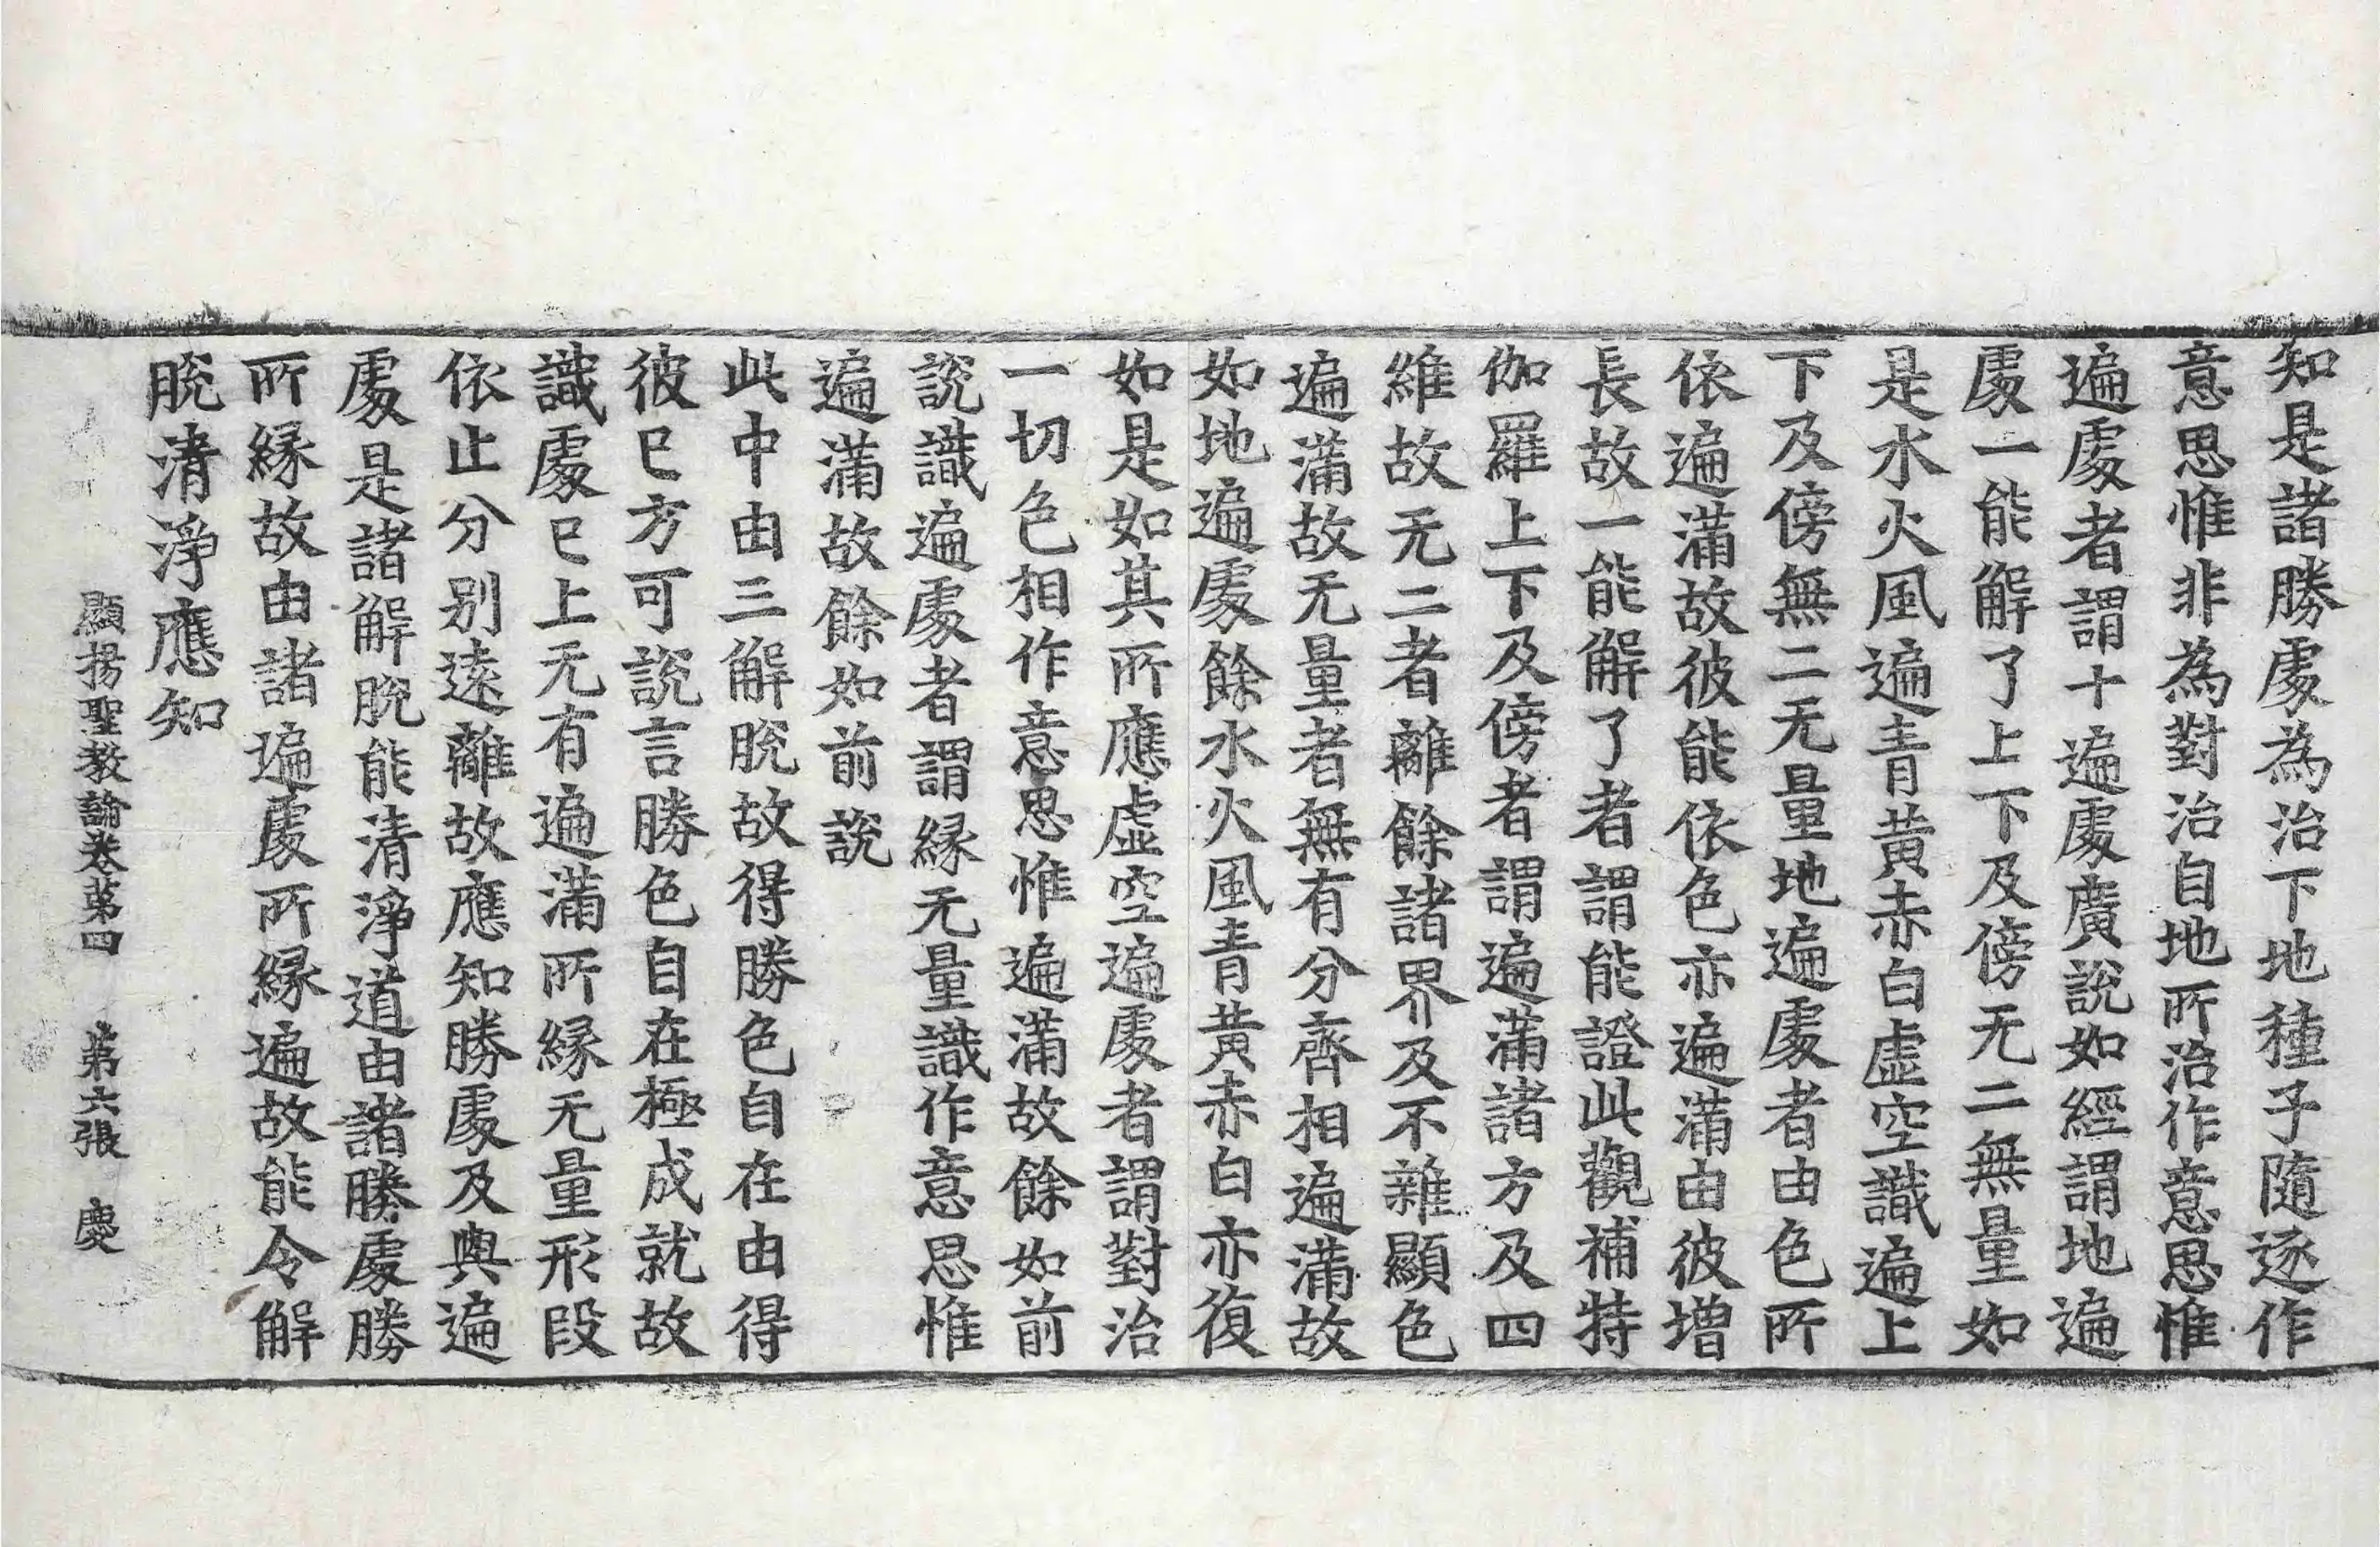 知是諸勝處為治下地種子隨逐作
意思惟非為對治自地所治作意思惟
遍處者謂十遍處廣說如經謂地遍
處一能解了上下及傍无二無量如
是水火風遍青黃赤白虛空識遍上
下及傍無二无量地遍處者由色所
依遍滿故彼能依色亦遍滿由彼增
長故一能解了者謂能證此觀補特
伽羅上下及傍者謂遍滿諸方及四
維故无二者離餘諸界及不雜顯色
遍滿故无量者無有分齊相遍滿故
如地遍處餘水火風青黃赤白亦復
如是如其所應虛空遍處者謂對治
一切色相作意思惟遍滿故餘如前
說識遍處者謂緣无量識作意思惟
遍滿故餘如前說
此中由三解脫故得勝色自在由得
彼已方可說言勝色自在極成就故
識處已上无有遍滿所緣无量形段
依止分別遠離故應知勝處及與遍
處是諸解脫能清淨道由諸勝處勝
所緣故由諸遍處所緣遍故能令解
脫清淨應知
顯揚聖教論卷第四 第六張 慶